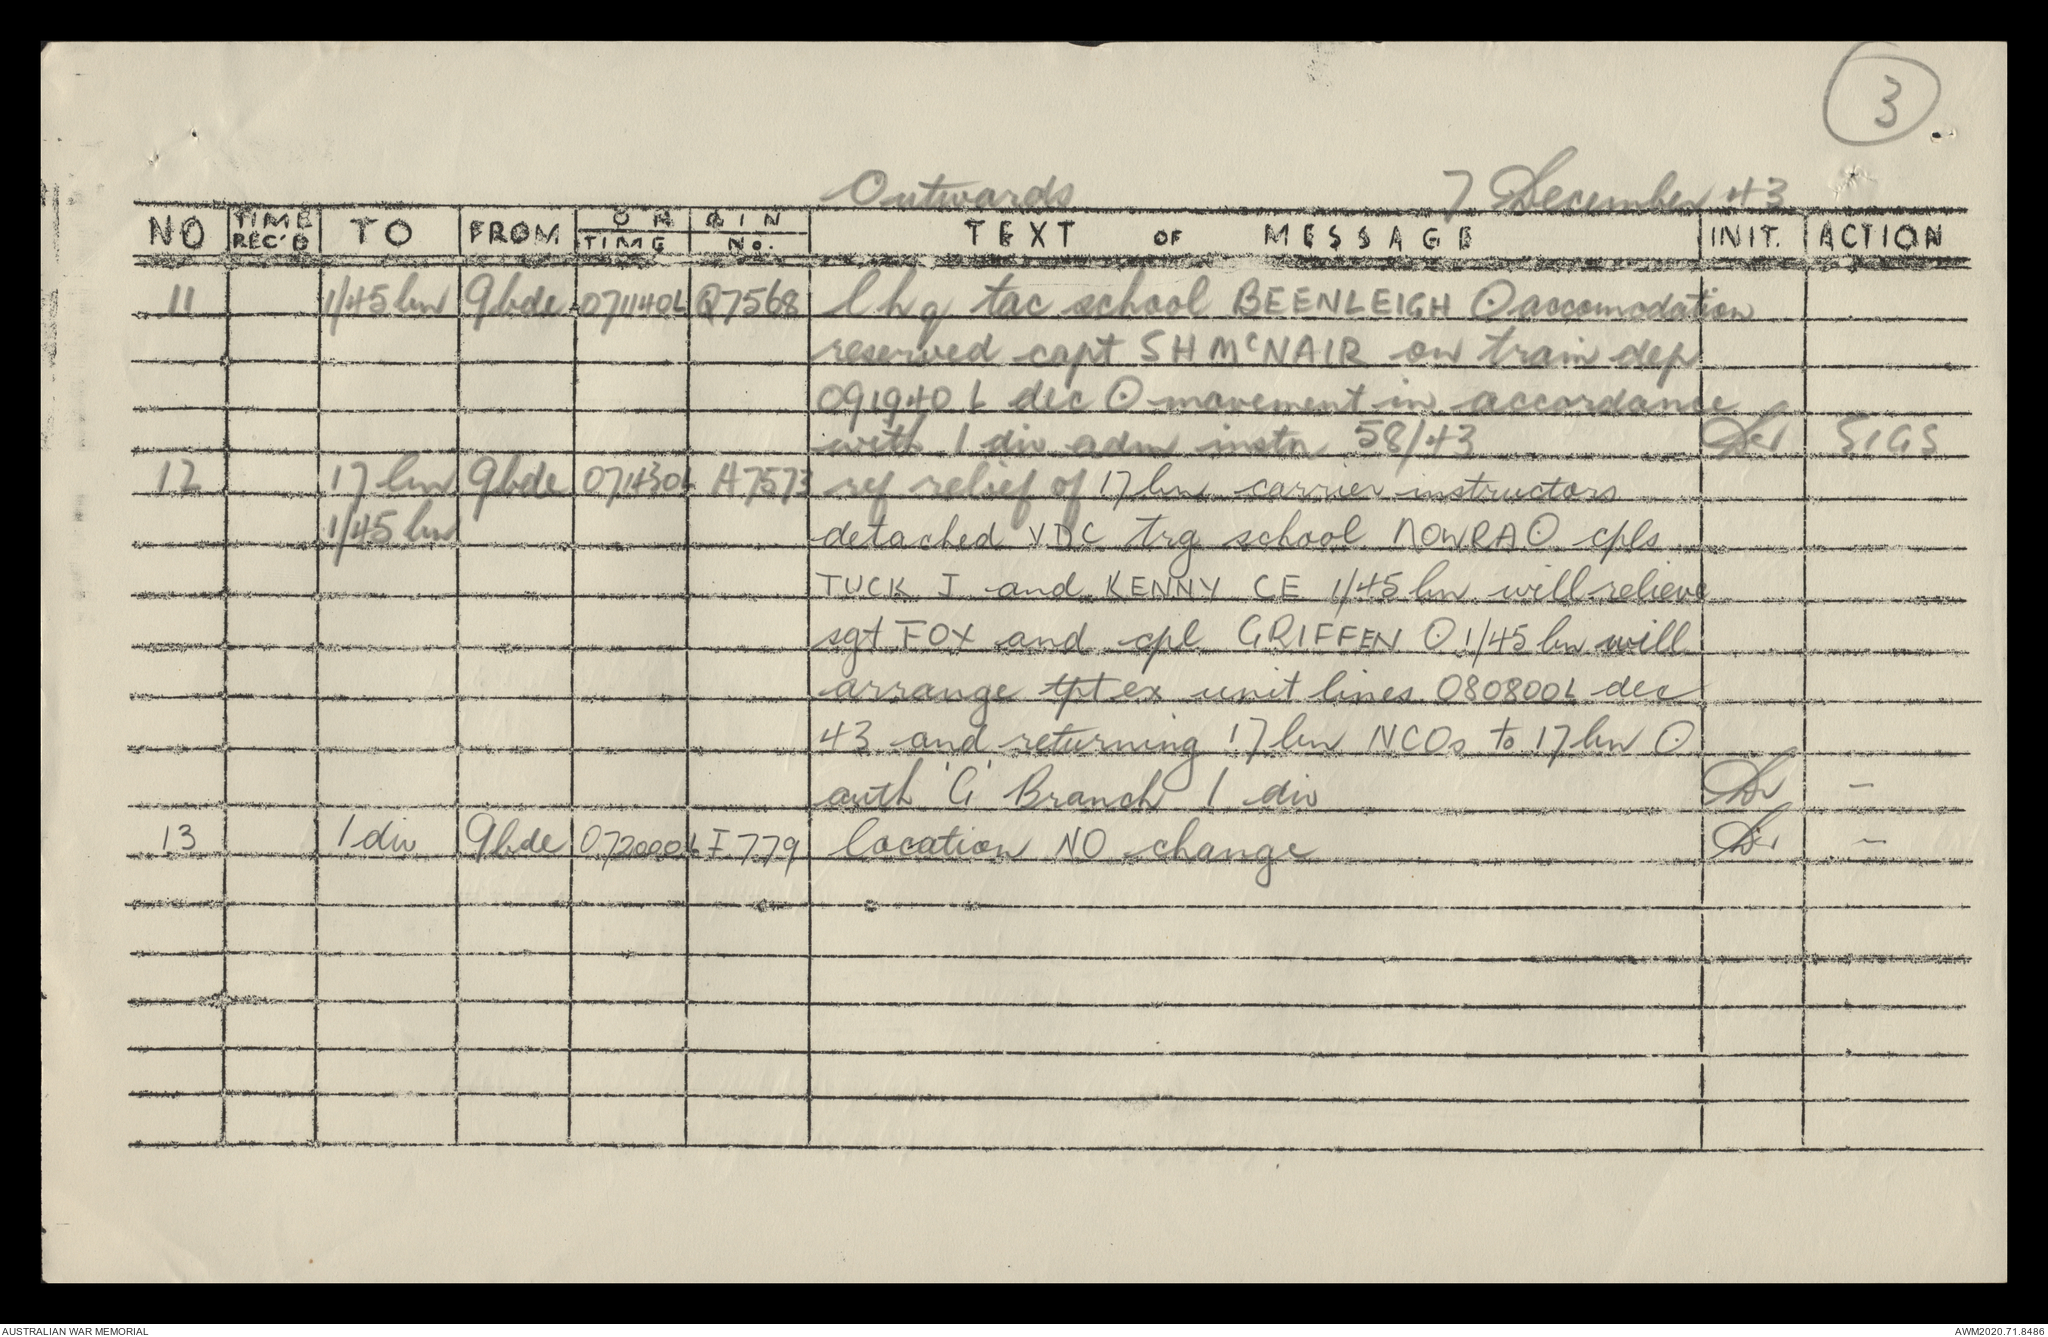 3
Outwards 7 December 43
NO TIME REC'D TO FROM ORIGIN TIME No. TEXT OF MESSAGE INIT. ACTION
11 1/45 bn 9 bde 071140L Q7568 lhq tac school BEENLEIGH O accomodation
reserved capt SH McNAIR on train dep
091940 L dec O movement in accordance
with 1 div adm instn 58/43 SIGS
12 17 bn 9 bde 071430L A7573 ref relief of 17 bn carrier instructors
1/45 bn detached VDC trg school NOWRA O cpls
TUCK J and KENNY CE 1/45 bn will relieve
sgt FOX and cpl GRIFFEN O 1/45 bn will
arrange tpt ex unit lines 080800L dec
43 and returning 17 bn NCOs to 17 bn O
auth 'G' Branch 1 div -
13 1 div 9 bde 072000L I 779 location NO change -
AUSTRALIAN WAR MEMORIAL AWM2020.71.8486